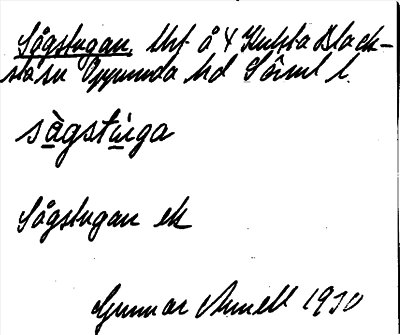 Sågstugan. Utj å 4 Kulsta Black-
sta sn Oppunda hd Söml l.
sàgstùga
Sågstugan ek
Gunnar Arnell 1930